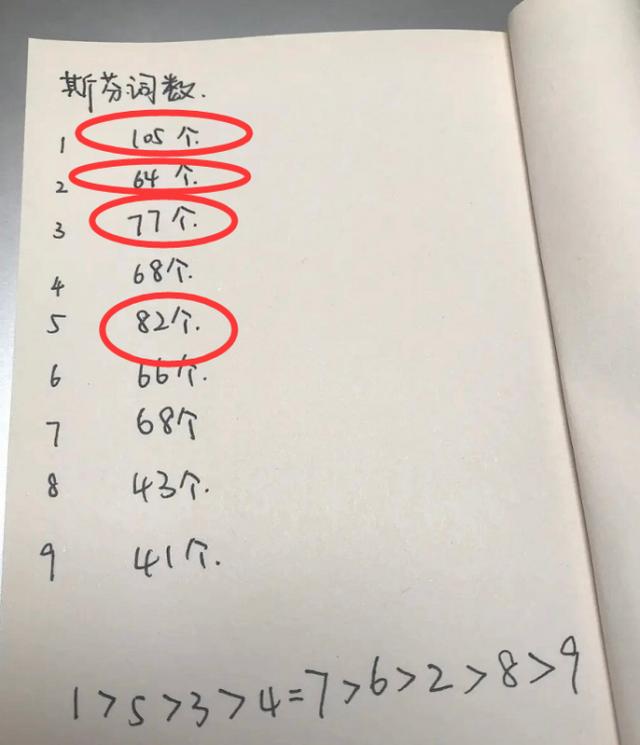 斯芬词数.
1 105个.
2 64个.
3 77个.
4 68个.
5 82个.
6 66个.
7 68个
8 43个.
9 41个.
1>5>3>4=7>6>2>8>9